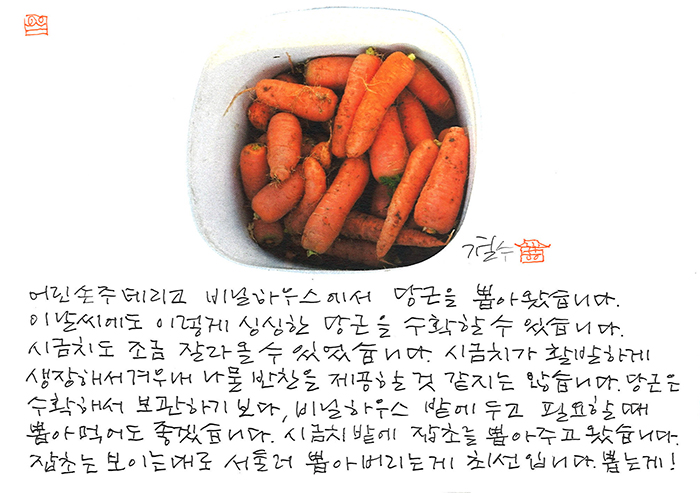 철수
어린손주 데리고 비닐하우스에서 당근을 뽑아왔습니다.
이날씨에도 이렇게 싱싱한 당근을 수확할 수 있습니다.
시금치도 조금 잘라올 수 있었습니다. 시금치가 활발하게
생장해서 겨우내 나물 반찬을 제공할 것 같지는 않습니다. 당근은
수확해서 보관하기 보다, 비닐하우스 밭에 두고 필요할 때
뽑아 먹어도 좋겠습니다. 시금치밭에 잡초를 뽑아주고 왔습니다.
잡초는 보이는대로 서둘러 뽑아버리는게 최선입니다. 뽑는게!